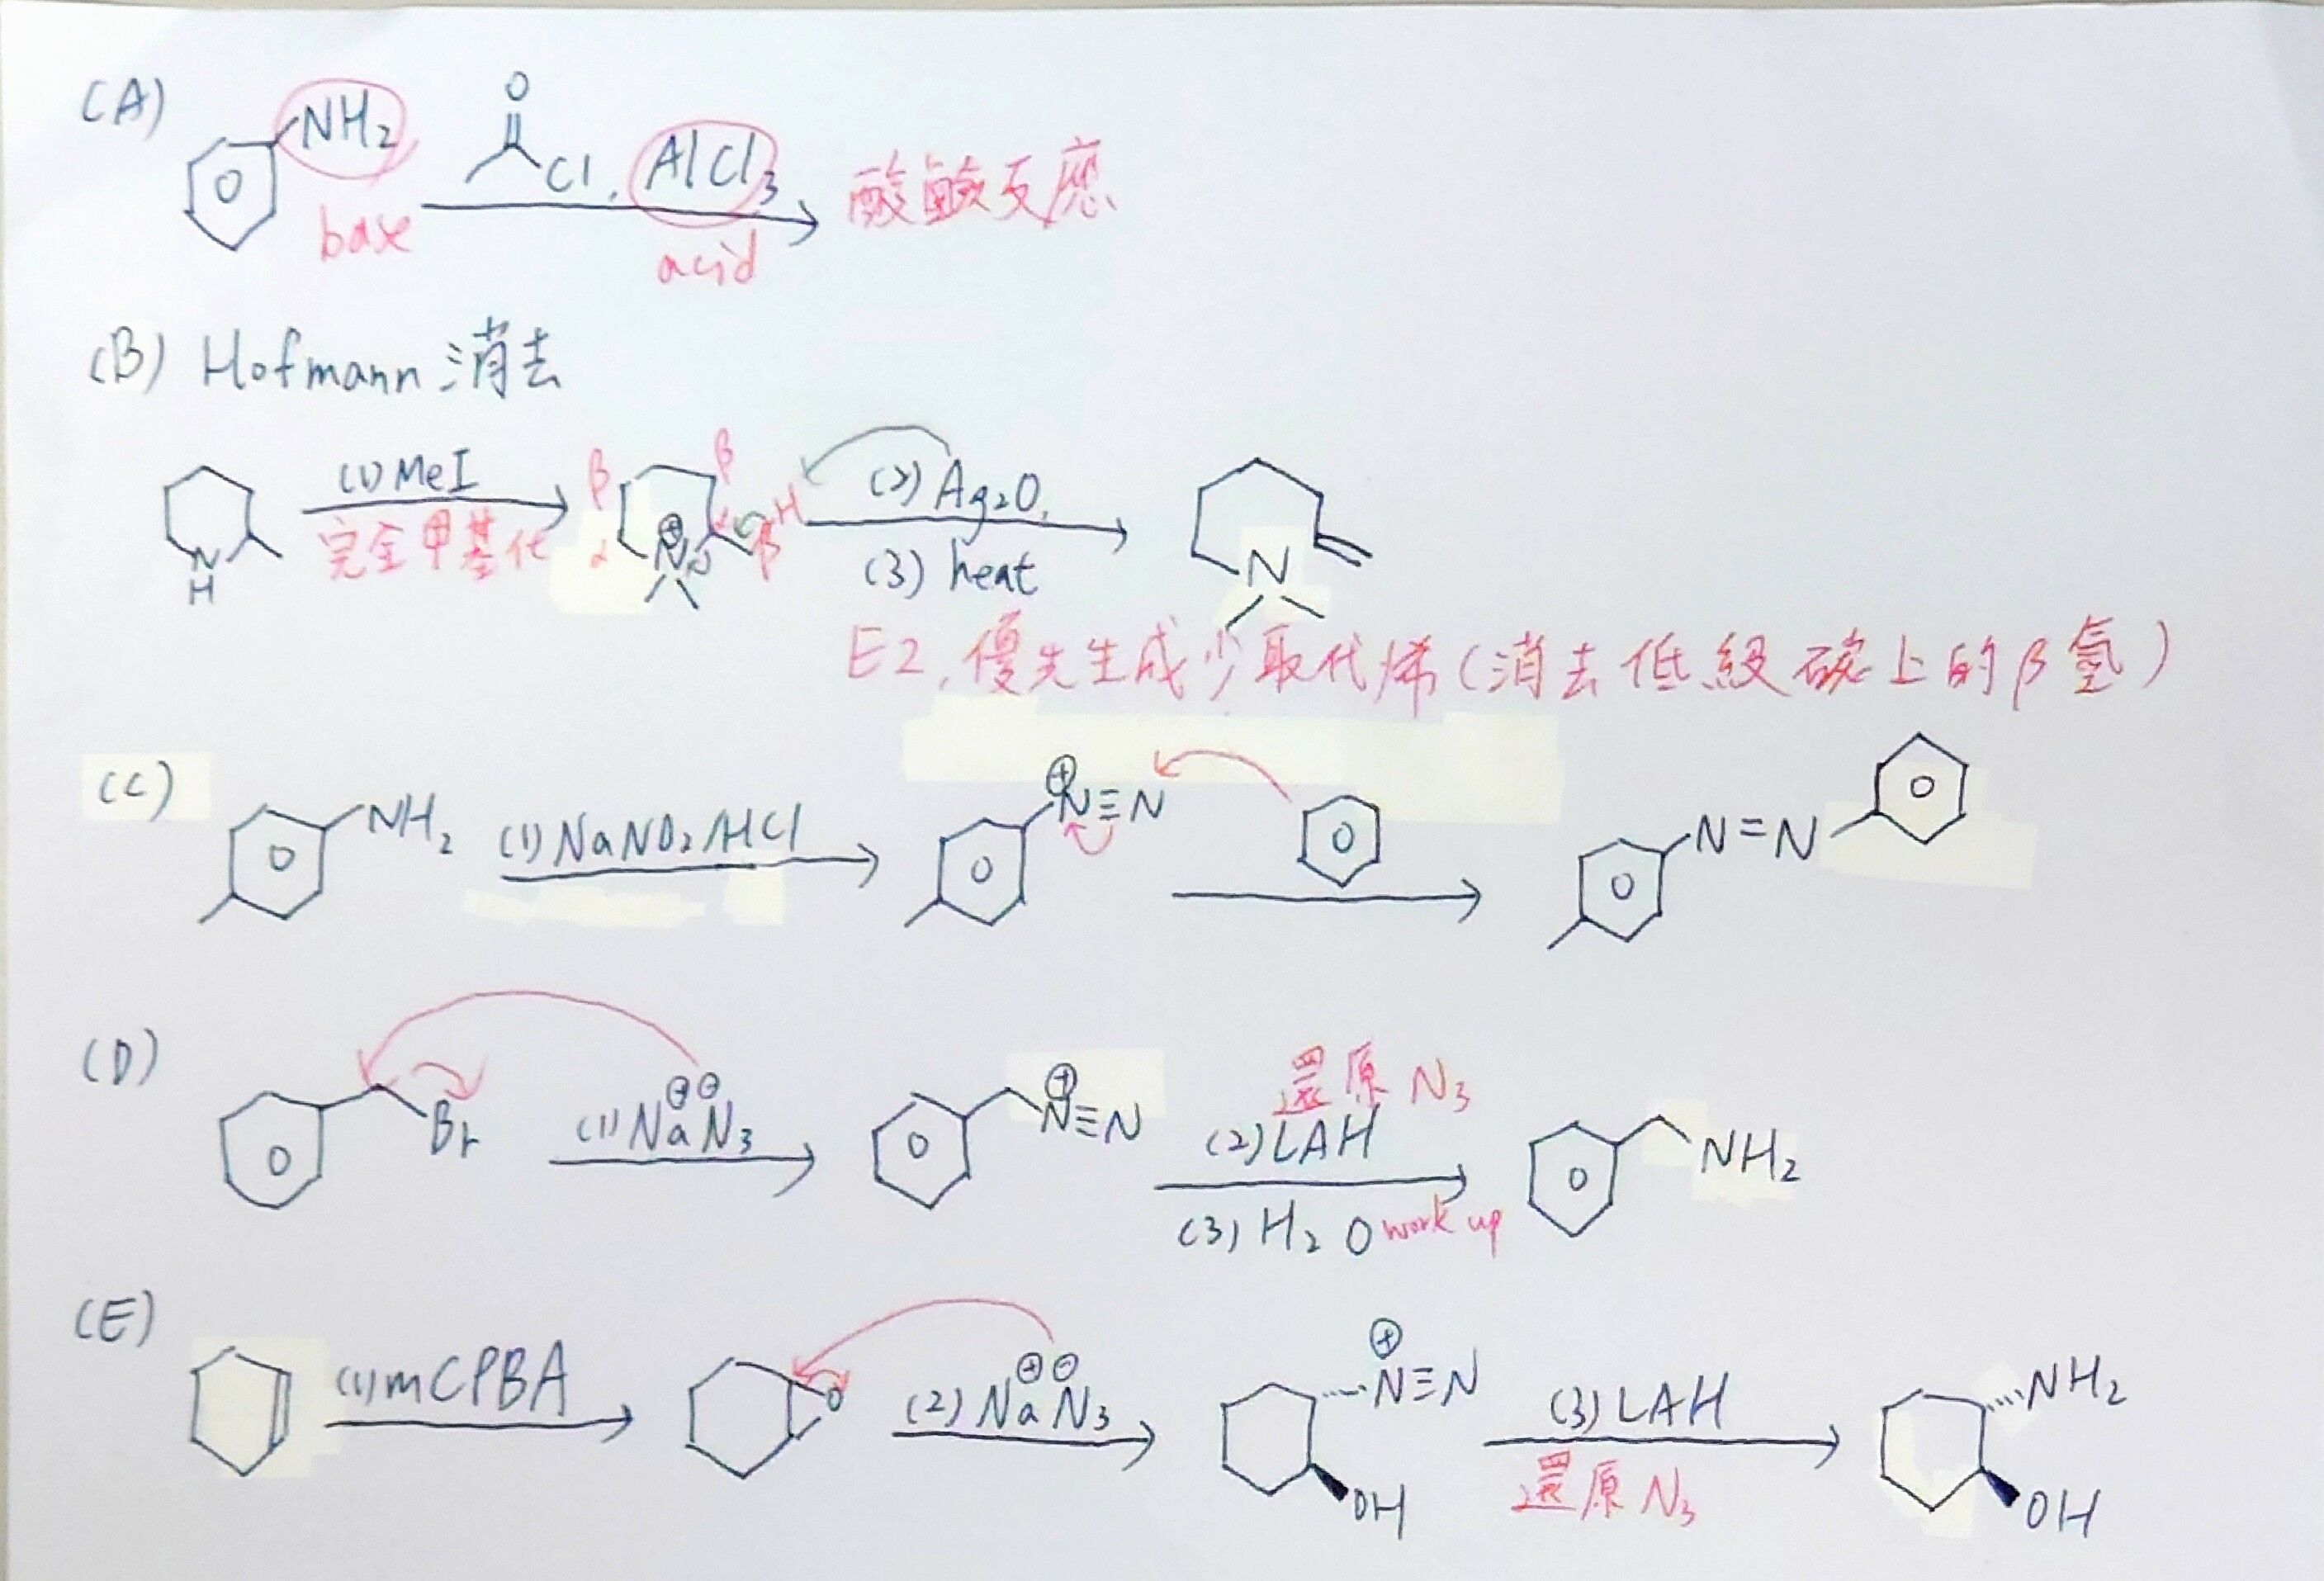 (A)
NH₂
O
Cl, AlCl₃
酸鹼反應
base
acid
(B) Hofmann 消去
N
H
(1) MeI
完全甲基化
β β
α ⊕ N α β H
(2) Ag₂O,
(3) heat
N
E2, 優先生成少取代烯(消去低級碳上的β氫)
(C)
NH₂
(1) NaNO₂/HCl
⊕
N≡N
N=N
(D)
Br
⊕ ⊖
(1) NaN₃
⊕
N≡N
還原 N₃
(2) LAH
(3) H₂O work up
NH₂
(E)
(1) mCPBA
O
⊕ ⊖
(2) NaN₃
⊕
N≡N
OH
(3) LAH
還原 N₃
NH₂
OH